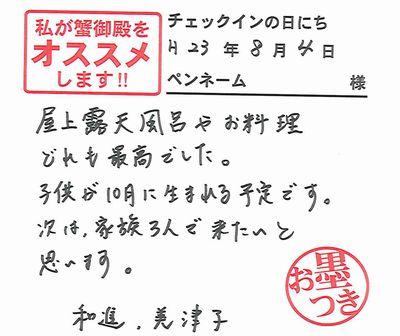 私が蟹御殿を
オススメ
します!!
チェックインの日にち
H23年8月4日
ペンネーム 様
屋上露天風呂やお料理
どれも最高でした。
子供が10月に生まれる予定です。
次は、家族3人で来たいと
思います。
和進.美津子
お墨つき